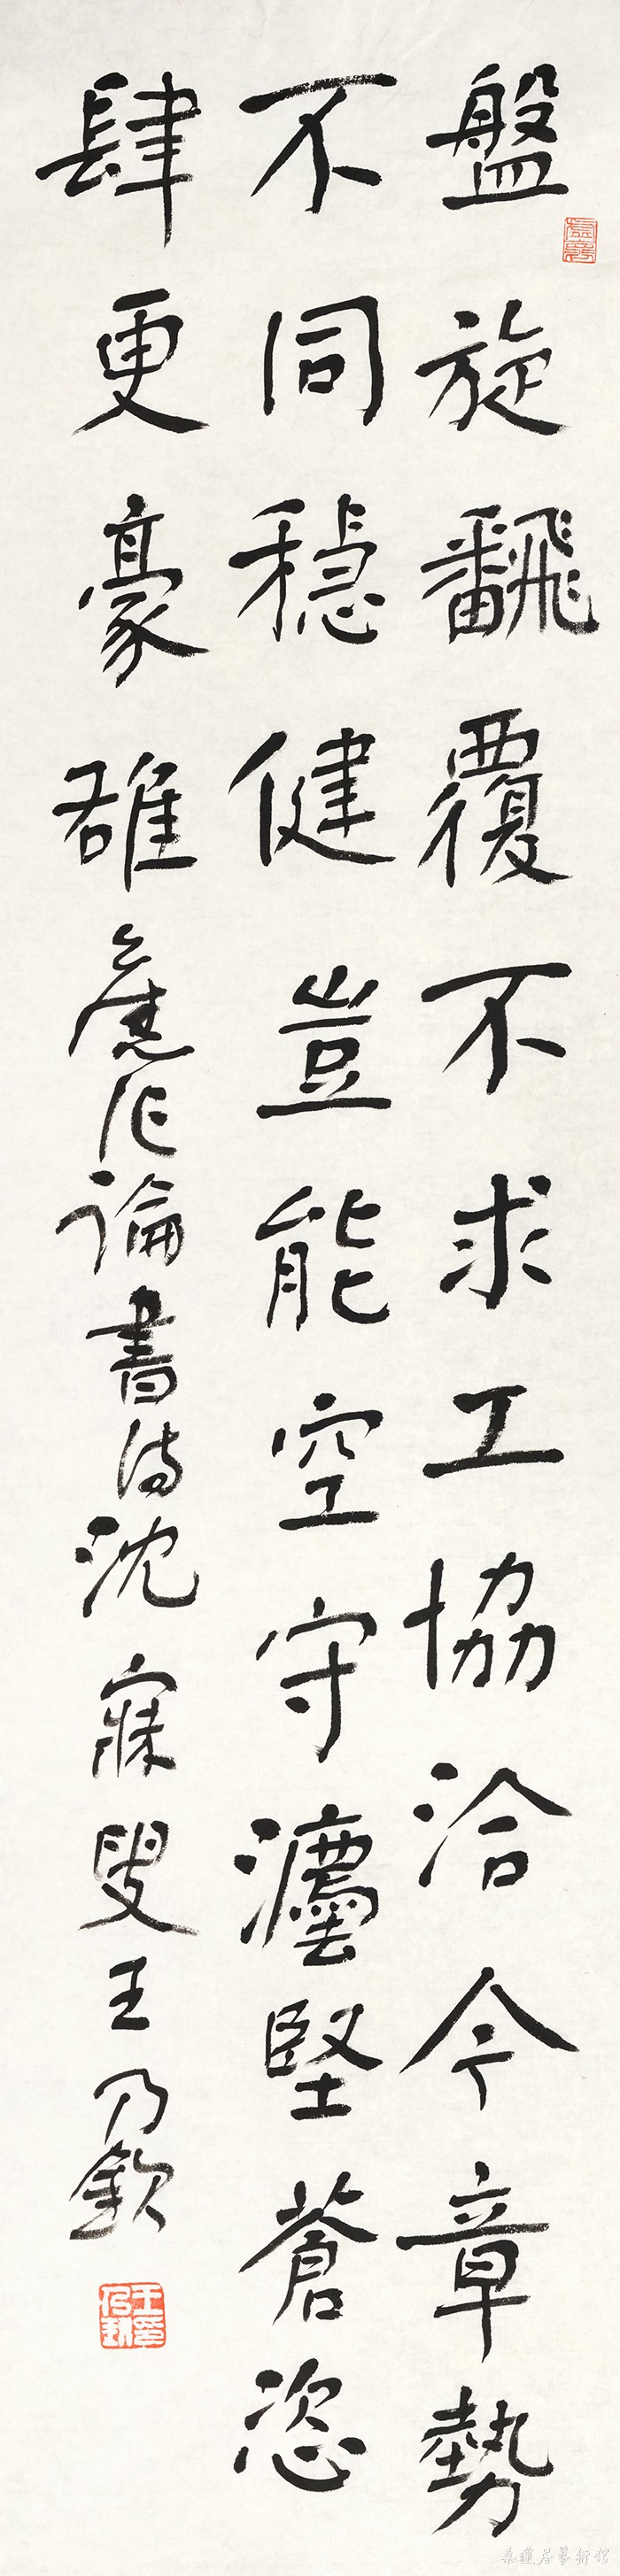 盤旋飜覆不求工協洽今章勢
不同穩健豈能空守灋堅蒼恣
肆更豪雄舊作論書詩沈寐叟王乃欽
桑蓮居藝術館